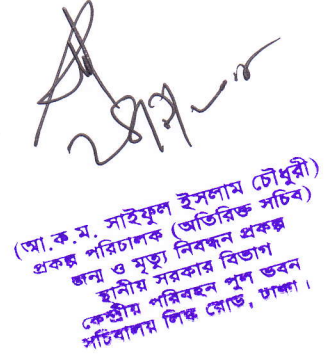 (আ.ক.ম. সাইফুল ইসলাম চৌধুরী)
প্রকল্প পরিচালক (অতিরিক্ত সচিব)
জন্ম ও মৃত্যু নিবন্ধন প্রকল্প
স্থানীয় সরকার বিভাগ
কেন্দ্রীয় পরিবহন পুল ভবন
সচিবালয় লিঙ্ক রোড, ঢাকা ।